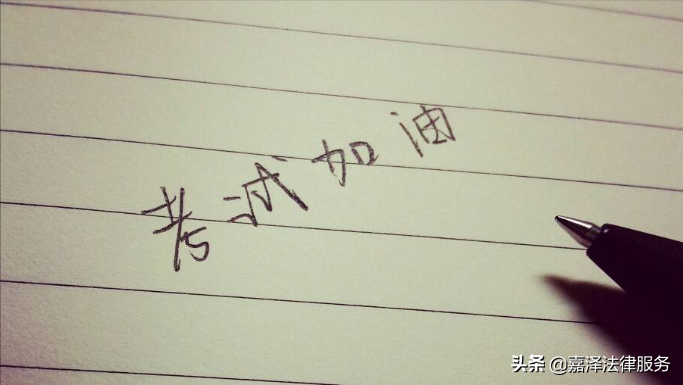 考试加油
头条 @嘉泽法律服务